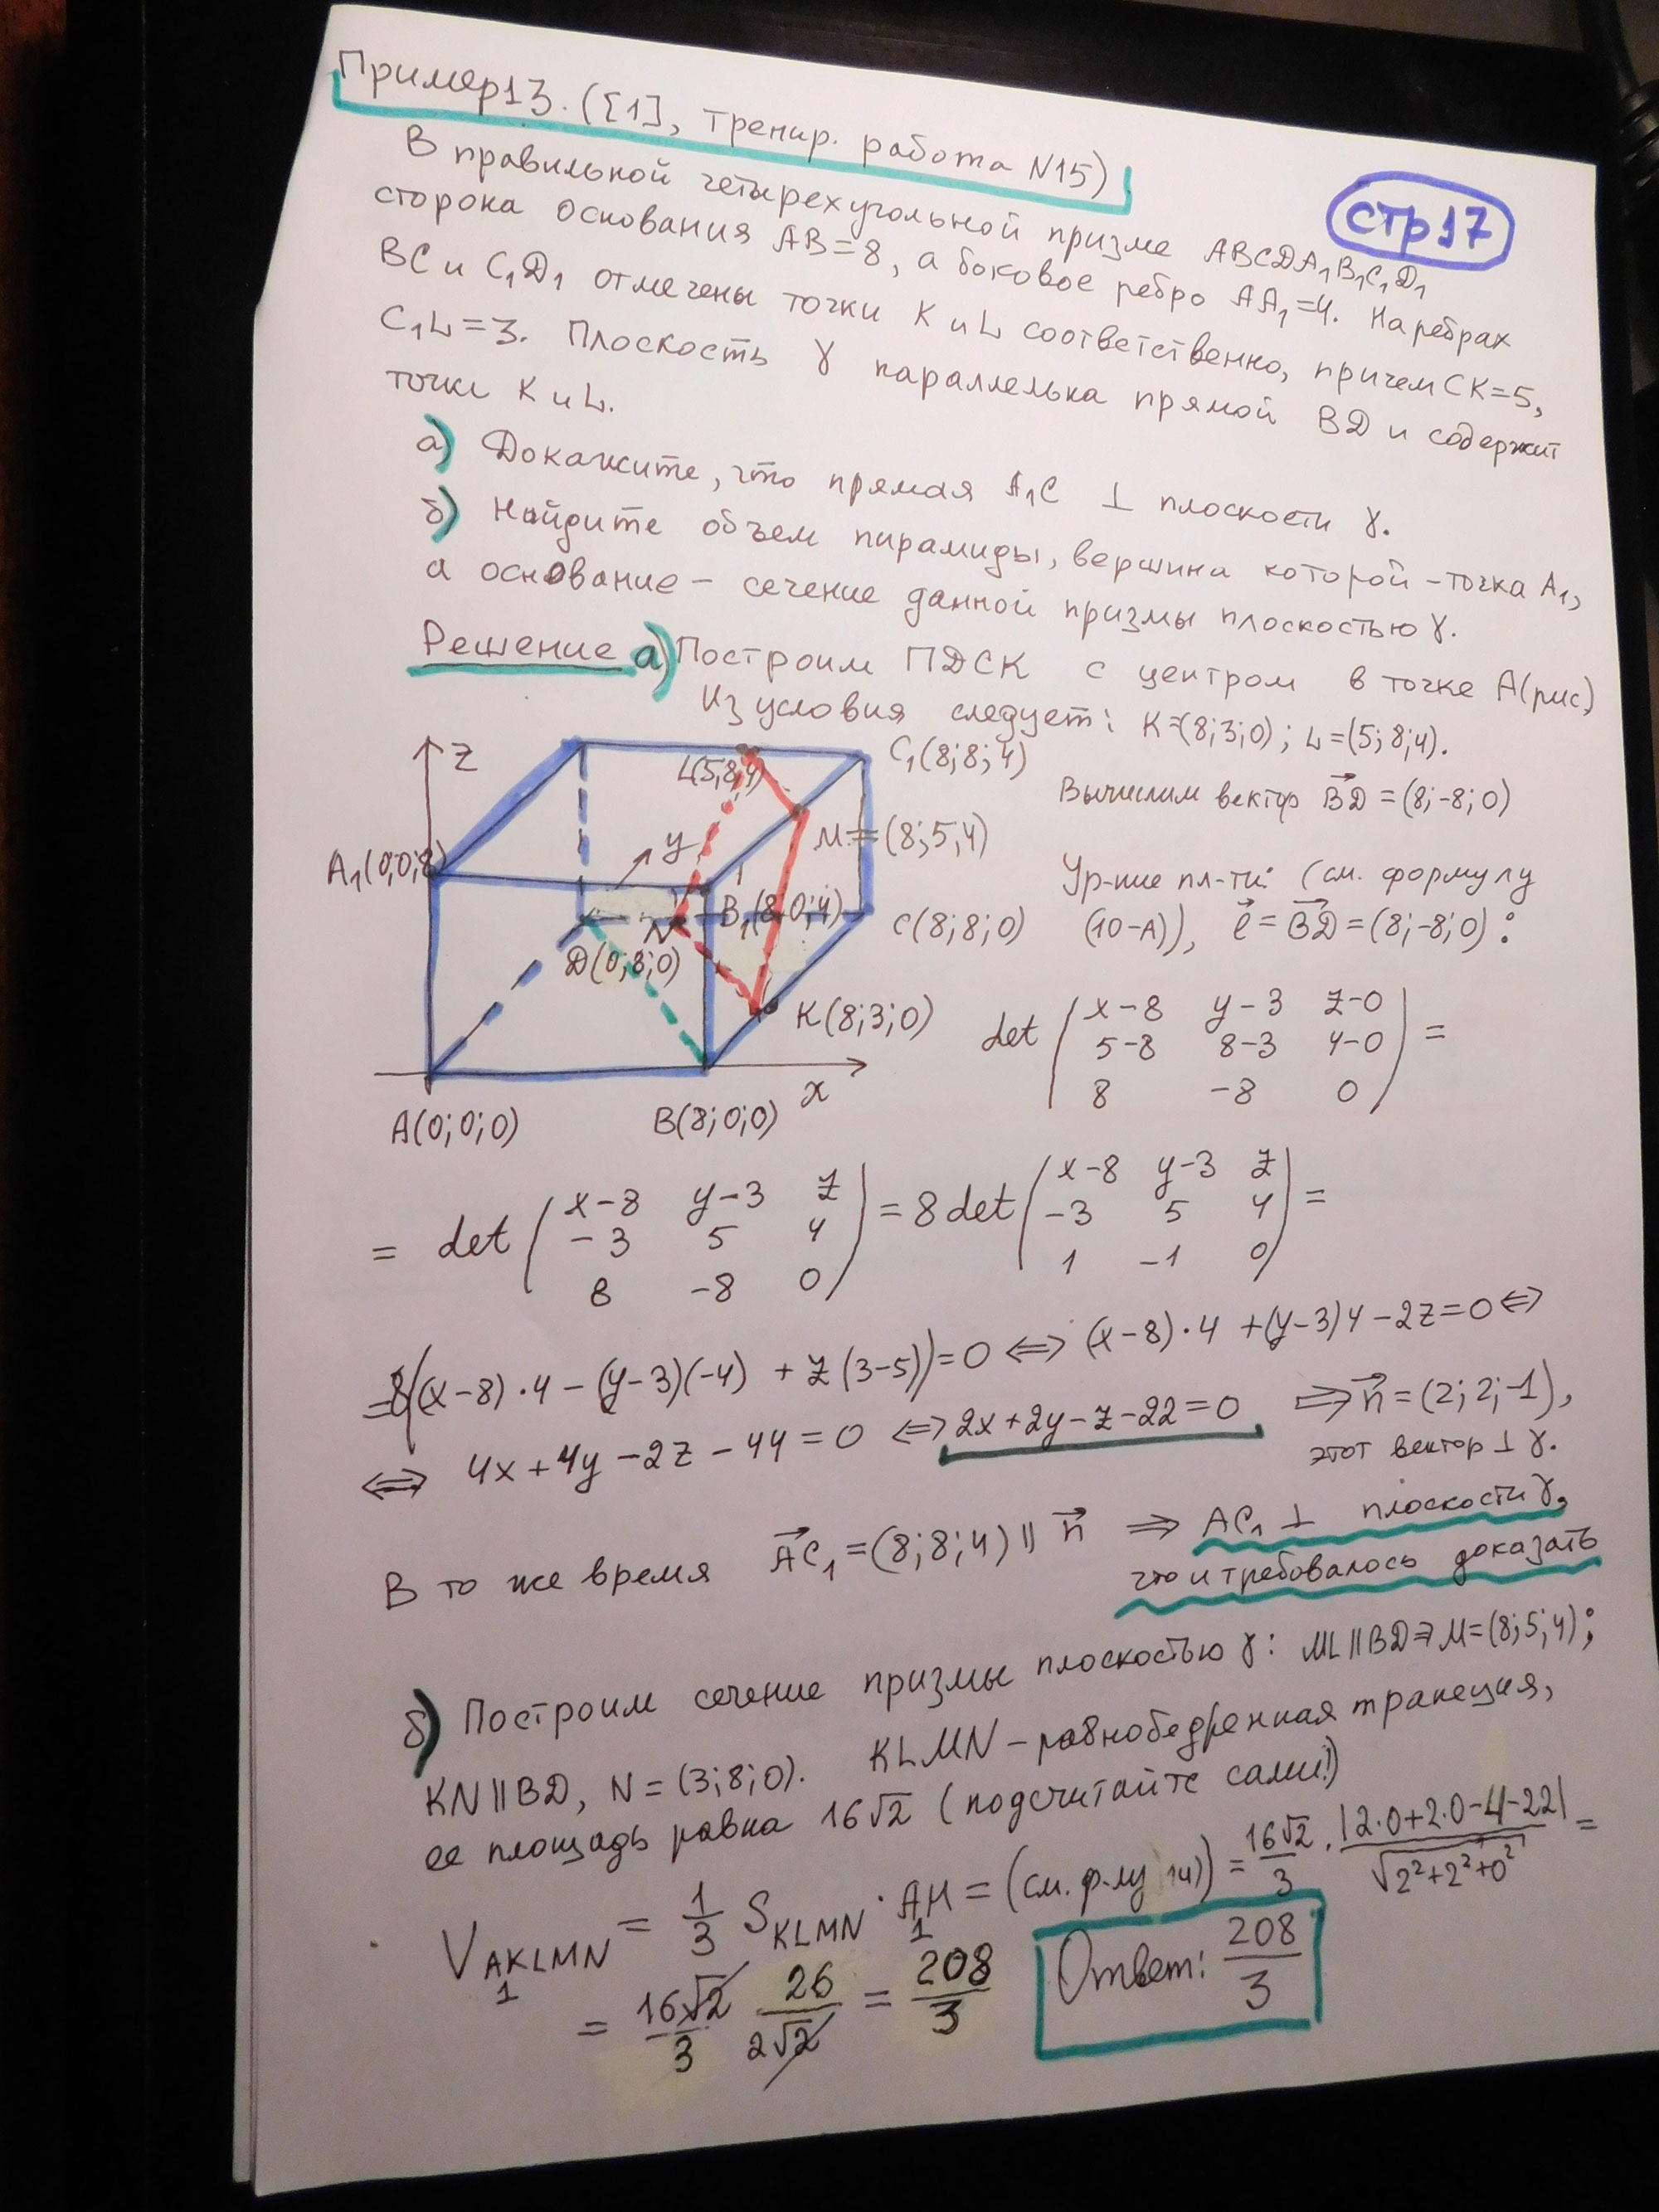 Пример 13. ([1], тренир. работа N15)
стр 17
В правильной четырехугольной призме ABCDA₁B₁C₁D₁
сторона основания AB=8, а боковое ребро AA₁=4. На ребрах
BC и C₁D₁ отмечены точки K и L соответственно, причем CK=5,
C₁L=3. Плоскость γ параллельна прямой BD и содержит
точки K и L.
а) Докажите, что прямая A₁C ⊥ плоскости γ.
б) Найдите объем пирамиды, вершина которой – точка A₁,
а основание – сечение данной призмы плоскостью γ.
Решение а) Построим ПДСК с центром в точке A (рис)
Из условия следует: K=(8;3;0); L=(5;8;4).
z
L(5,8,4)
C₁(8;8;4)
Вычислим вектор BD⃗ = (8;-8;0)
A₁(0;0;8)
y
M=(8;5;4)
Ур-ние пл-ти: (см. формулу
N
B₁(8,0;4)
C(8;8;0)
(10-A)), ℓ⃗ = BD⃗ = (8;-8;0):
D(0;8;0)
K(8;3;0)
det ( x-8 y-3 z-0
5-8 8-3 4-0
8 -8 0 ) =
x
A(0;0;0)
B(8;0;0)
= det ( x-8 y-3 z
-3 5 4
8 -8 0 ) = 8 det ( x-8 y-3 z
-3 5 4
1 -1 0 ) =
=8((x-8)·4-(y-3)(-4) + z(3-5))=0 ⇔ (x-8)·4 +(y-3)4-2z=0 ⇔
⇔ 4x+4y-2z-44=0 ⇔ 2x+2y-z-22=0 ⇒ n⃗=(2;2;-1),
этот вектор ⊥ γ.
В то же время AC₁⃗=(8;8;4) ∥ n⃗ ⇒ AC₁ ⊥ плоскости γ,
что и требовалось доказать
б) Построим сечение призмы плоскостью γ: ML∥BD⇒M=(8;5;4);
KN∥BD, N=(3;8;0). KLMN – равнобедренная трапеция,
ее площадь равна 16√2 (подсчитайте сами!)
V_A₁KLMN = 1/3 S_KLMN · A₁H = (см. ф-лу 14)) = 16√2/3 · |2·0+2·0-4-22|/√(2²+2²+0²) =
= 16√2/3 26/2√2 = 208/3
Ответ: 208/3